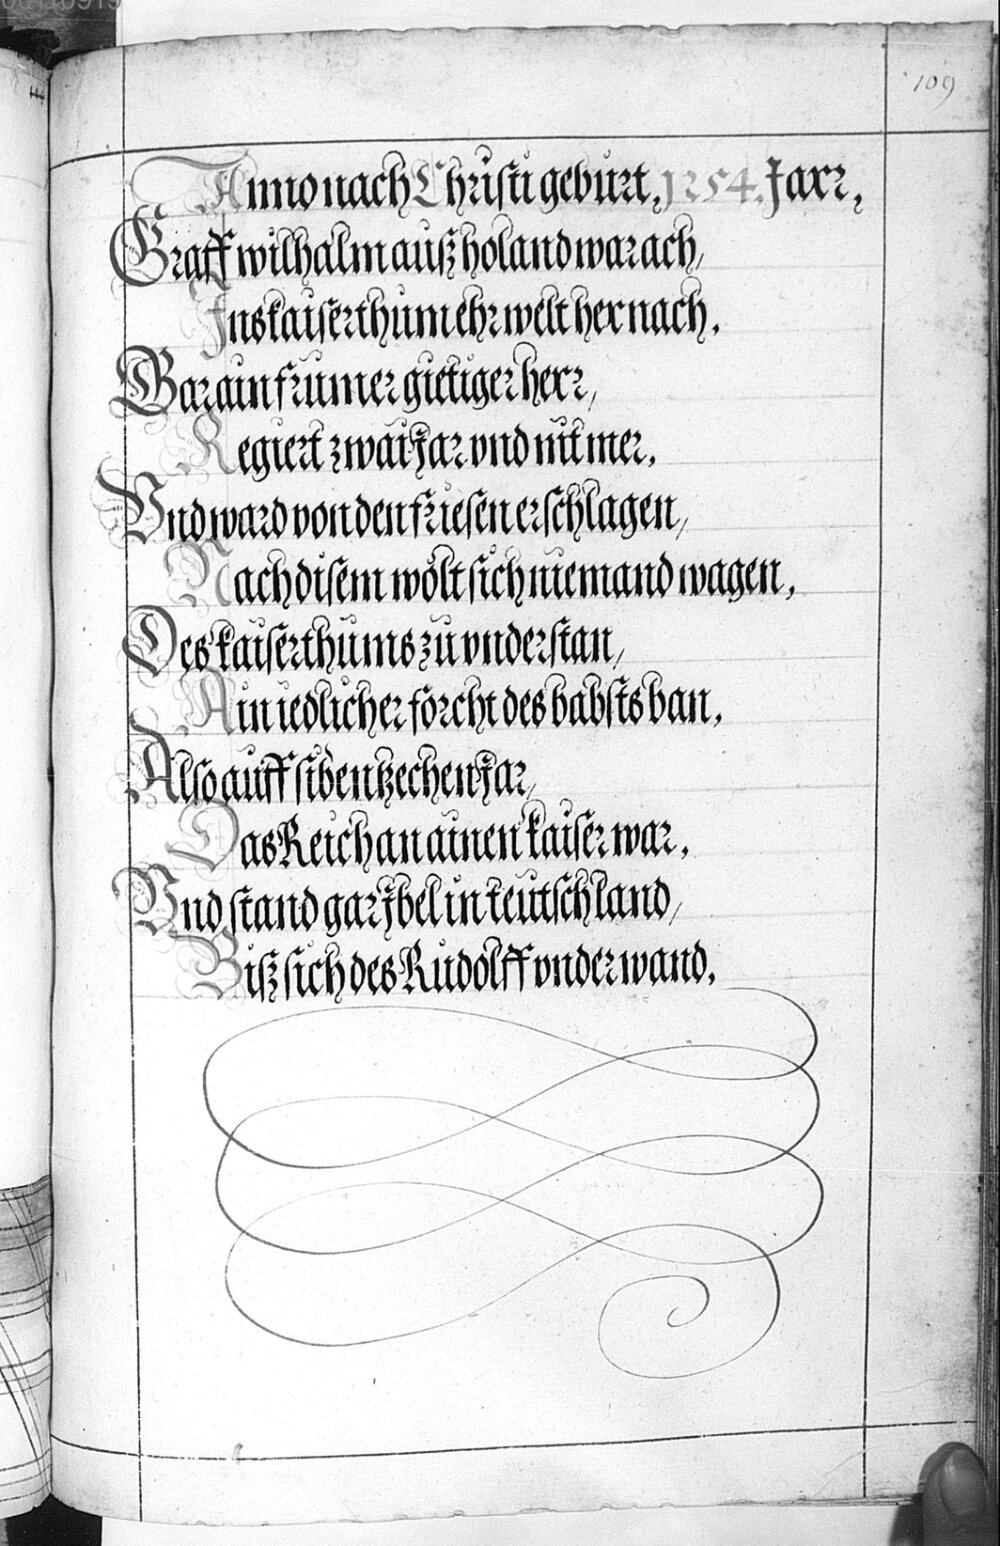 109
Anno nach Christi geburt, 1254. Jarr,
Graff wilhalm auß holand war ach,
Ins kaiserthum ehrwelt hernach.
War ain frumer gietiger herr,
Regiert zwai Jar vnd nit mer.
Vnd ward von den friesen erschlagen,
Nach disem wolt sich niemand wagen,
Des kaiserthums zu vnderstan,
Ain iedlicher forcht des babsts ban.
Also auff sibentzechen Jar,
Das Reich an ainen kaiser war.
Vnd stand gar Ibel in teutschland,
Biß sich des Rudolff vnderwand.